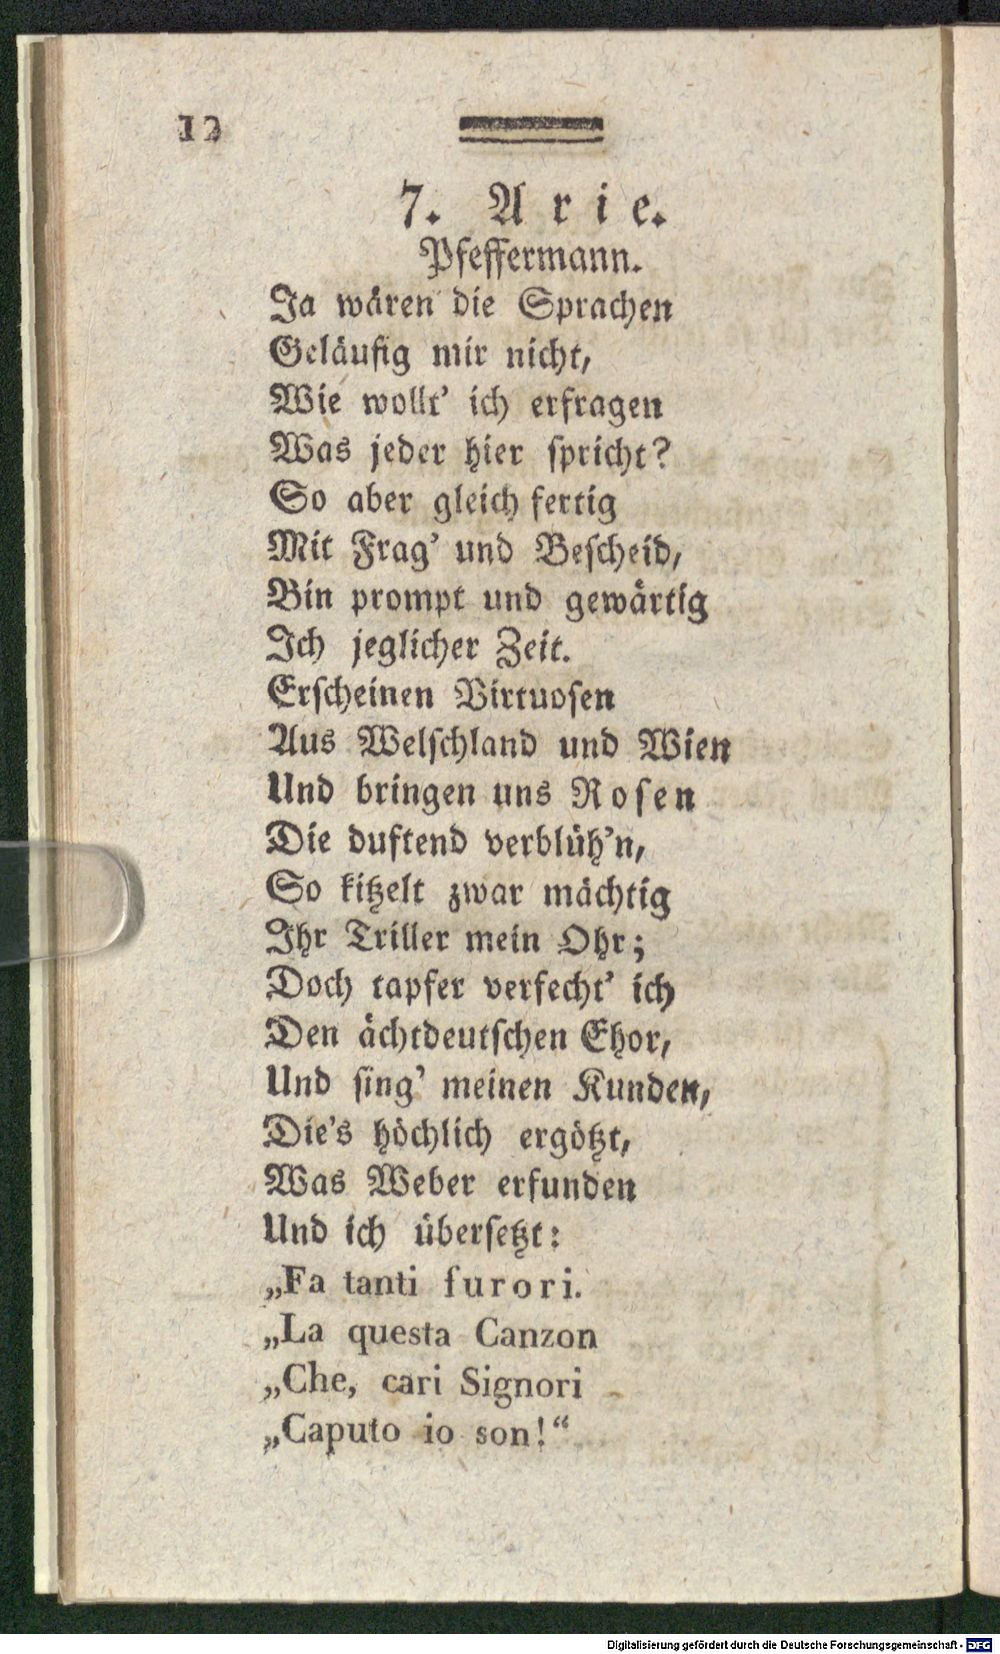 12
7. Arie.
Pfeffermann.
Ja wären die Sprachen
Geläufig mir nicht,
Wie wollt' ich erfragen
Was jeder hier ſpricht?
So aber gleich fertig
Mit Frag' und Beſcheid,
Bin prompt und gewärtig
Ich jeglicher Zeit.
Erſcheinen Virtuoſen
Aus Welſchland und Wien
Und bringen uns Roſen
Die duftend verblüh'n,
So kitzelt zwar mächtig
Ihr Triller mein Ohr;
Doch tapfer verfecht' ich
Den ächtdeutſchen Chor,
Und ſing' meinen Kunden,
Die's höchlich ergötzt,
Was Weber erfunden
Und ich überſetzt:
„Fa tanti furori.
„La questa Canzon
„Che, cari Signori
„Caputo io son!“
Digitalisierung gefördert durch die Deutsche Forschungsgemeinschaft - DFG